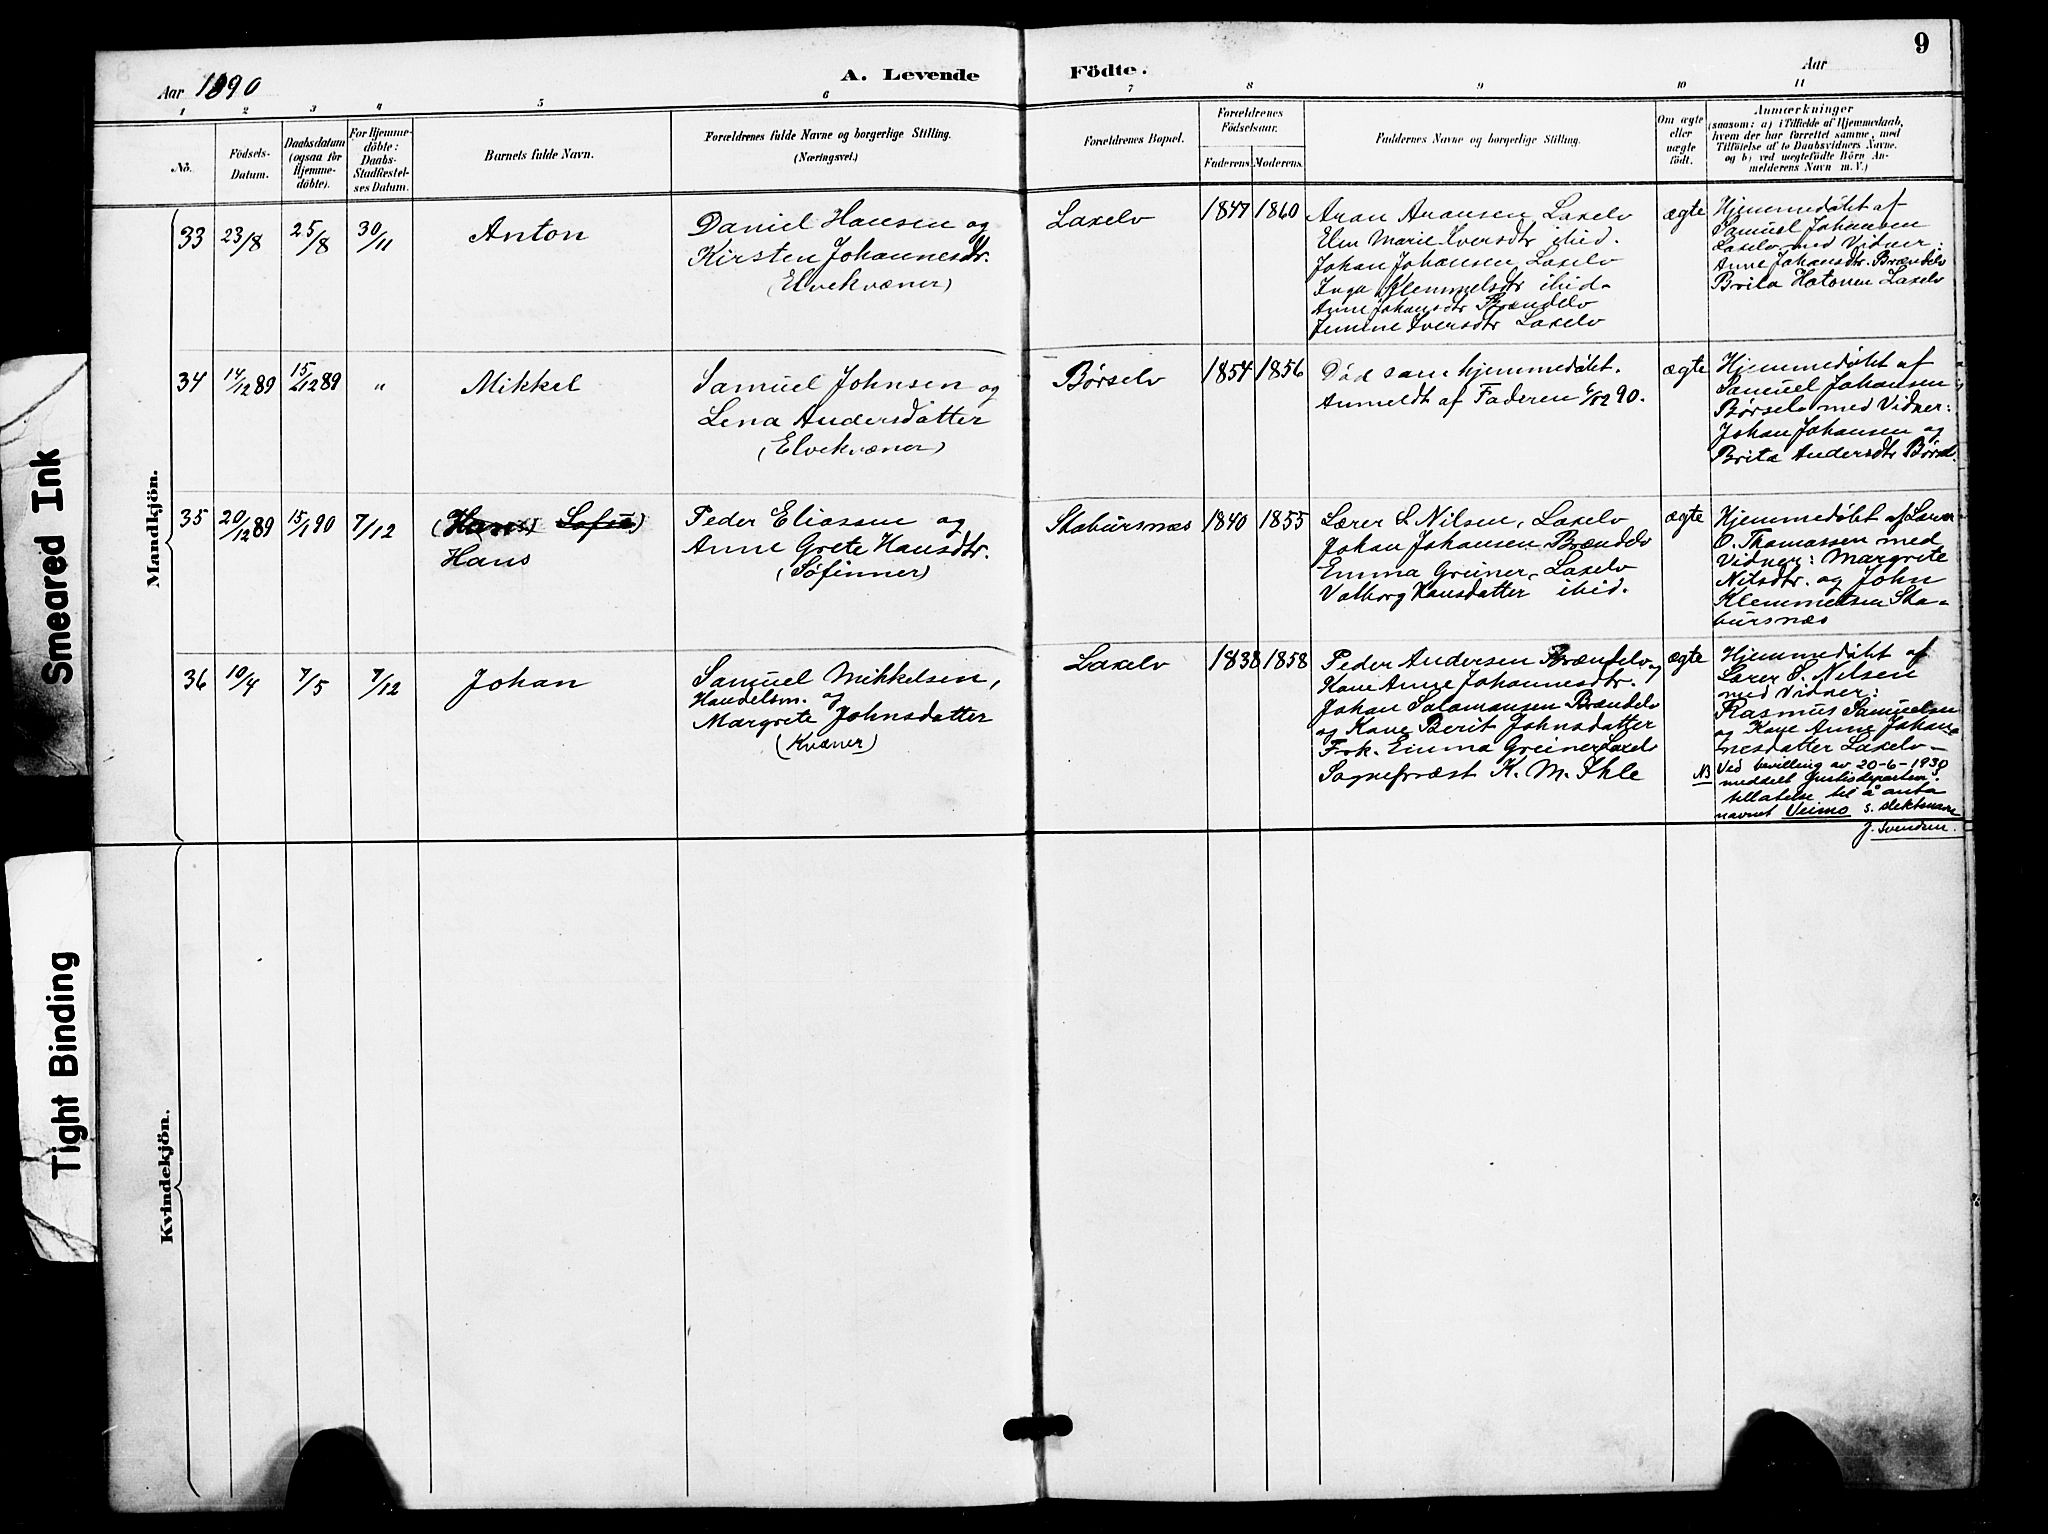 9
Aar 1890
A. Levende Födte.
Aar
1 2 3 4 5 6 7 8 9 10 11
Nó.
Födsels-
Datum.
Daabsdatum
(ogsaa for
Hjemme-
döbte).
For Hjemme-
döbte:
Daabs-
Stadfæstel-
ses Datum.
Barnets fulde Navn.
Forældrenes fulde Navne og borgerlige Stilling.
(Næringsvei.)
Forældrenes Bopæl.
Forældrenes
Födselsaar.
Faderens. Moderens.
Faddernes Navne og borgerlige Stilling.
Om ægte
eller
uægte
födt.
Anmærkninger
(saasom: a) i Tilfælde af Hjemmedaab,
hvem der har forrettet samme, med
Tilföielse af to Daabsvidners Navne.
og b) ved uegtefödte Börn An-
melderens Navn m. V.)
Mandkjön.
33 23/8 25/8 30/11 Anton
Daniel Hansen og
Kirsten Johannesdtr.
(Elvekvæner)
Laxelv
1847 1860
Aron Aronsen, Laxelv
Elen Marie Iversdtr ibid.
Johan Johansen, Laxelv
Inga Klemmetsdtr ibid.
Anne Johansdtr Brændelv
Jemine Iversdtr Laxelv
ægte
Hjemmedøbt af
Samuel Johansen
Laxelv med Vidner:
Anne Johansdtr. Brændelv
Brita Hotonen Laxelv
34 14/12 89 15/12 89 " Mikkel
Samuel Johnsen og
Lena Andersdatter
(Elvekvæner)
Børselv
1854 1856
Død som hjemmedøbt.
Anmeldt af Faderen 6/12 90.
ægte
Hjemmedøbt af
Samuel Johansen
Børselv med Vidner:
Johan Johansen og
Brita Andersdtr Børsel.
35 20/12 89 15/1 90 7/12 (Hans Sofus)
Hans
Peder Eliassen og
Anne Grete Hansdtr.
(Søfinner)
Stabursnæs
1840 1855
Lærer L Nilsen, Laxelv
Johan Johansen Brændelv
Emma Greiner, Laxelv
Valborg Hansdatter ibid.
ægte
Hjemmedøbt af Lærer
O. Thomassen med
Vidner: Margrete
Nilsdtr. og John
Klemmetsen Sta-
bursnæs
36 10/4 7/5 7/12 Johan
Samuel Mikkelsen,
Handelsm. og
Margrete Johnsdatter
(Kvæner)
Laxelv
1838 1858
Peder Andersen Brændelv og
Kone Anne Johannesdtr.
Johan Salamonsen Brændelv
og Kone Berit Johnsdatter
Frk. Emma Greiner Laxelv
Sognepræst K. M. Ihle
ægte
Hjemmedøbt af
Lærer L. Nilsen
med Vidner:
Rasmus Samuelsen
og Kone Anne Johan-
nesdatter Laxelv -
NB Ved bevilling av 20-6-1930
meddelt Justisdepartem.
tillatelse til å anta
navnet Veimo s. slektsnavn
J. Svendsen.
Kvindekjön.
Smeared Ink
Tight Binding